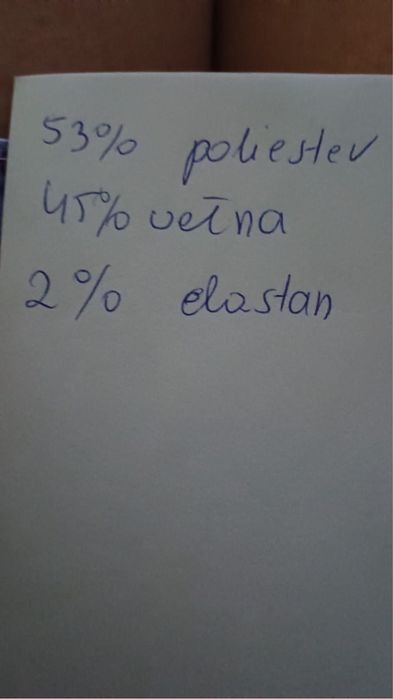 53% poliester
45% wełna
2% elastan